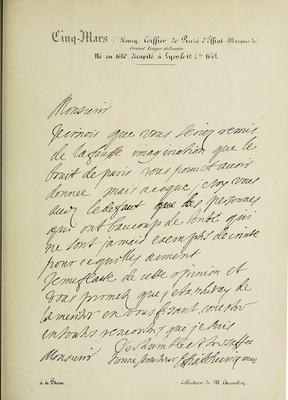 Cinq-Mars (Henry Coiffier de Ruzé d'Effiat Marquis de)
Grand Ecuyer de France
Né en 1620, décapité à Lyon le 12 7bre 1642.
Monsieur
Je crois que vous seriez remis
de la fausse imagination que le
bruit de paris vous pouvoit avoir
donnee mais a ce que je voy vous
avez le defaut que des personnes
qui ont baucoup de bonté qui
ne sont jamais exempts de crainte
pour ce qu'elles aiment
Je me flatte de cette opinion et
vous promets que j'essairay de
la meriter en vous faisant
en toutes rencontres que je suis
Monsieur
Vostre humble et
serviteur
Collection de M.